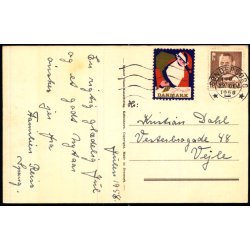 En rigtig glædelig Jul
og et godt nytaar
ønsker jer fra
Familien
Julen 1958.
DANMARK
1958
Til:
Kristian Dahl
Vesterbrogade 48
Vejle